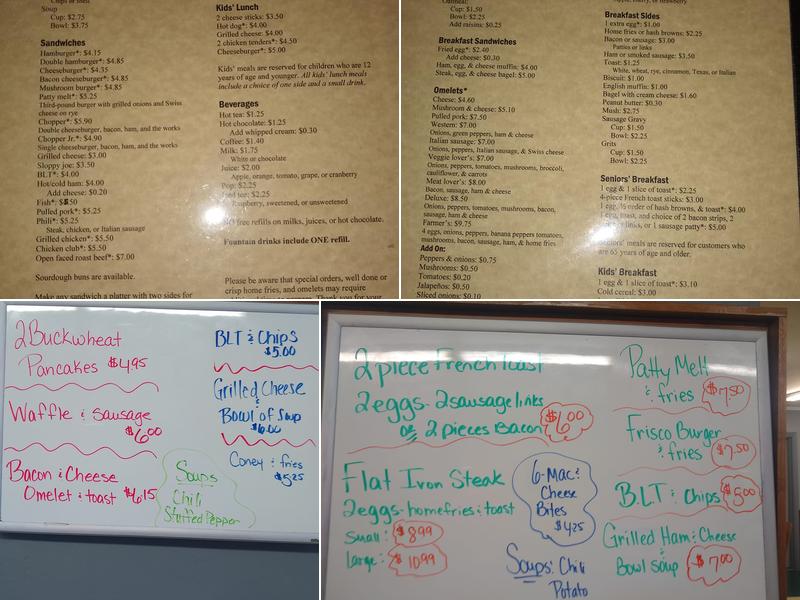 Soup
Cup: $2.75
Bowl: $3.75
Sandwiches
Hamburger*: $4.15
Double hamburger*: $4.85
Cheeseburger*: $4.35
Bacon cheeseburger*: $4.85
Mushroom burger*: $4.85
Patty melt*: $5.25
Third-pound burger with grilled onions and Swiss
cheese on rye
Chopper*: $5.90
Double cheeseburger, bacon, ham, and the works
Chopper Jr.*: $4.90
Single cheeseburger, bacon, ham, and the works
Grilled cheese: $3.00
Sloppy joe: $3.50
BLT*: $4.00
Hot/cold ham: $4.00
Add cheese: $0.20
Fish*:
Pulled pork*: $5.25
Phili*: $5.25
Steak, chicken, or Italian sausage
Grilled chicken*: $5.50
Chicken club*: $5.50
Open faced roast beef*: $7.00
Sourdough buns are available.
Make any sandwich a platter with two sides for
Kids' Lunch
2 cheese sticks: $3.50
Hot dog*: $4.00
Grilled cheese: $4.00
2 chicken tenders*: $4.50
Cheeseburger*: $5.00
Kids' meals are reserved for children who are 12
years of age and younger. All kids' lunch meals
include a choice of one side and a small drink.
Beverages
Hot tea: $1.25
Hot chocolate: $1.25
Add whipped cream: $0.30
Coffee: $1.40
Milk: $1.75
White or chocolate
Juice: $2.00
Apple, orange, tomato, grape, or cranberry
Pop: $2.25
Iced tea: $2.25
Raspberry, sweetened, or unsweetened
NO free refills on milks, juices, or hot chocolate.
Fountain drinks include ONE refill.
Please be aware that special orders, well done or
crisp home fries, and omelets may require
Oatmeal:
Cup: $1.50
Bowl: $2.25
Add raisins: $0.25
Breakfast Sandwiches
Fried egg*: $2.40
Add cheese: $0.30
Ham, egg, & cheese muffin: $4.00
Steak, egg, & cheese bagel: $5.00
Omelets*
Cheese: $4.60
Mushroom & cheese: $5.10
Pulled pork: $7.50
Western: $7.00
Onions, green peppers, ham & cheese
Italian sausage: $7.00
Onions, peppers, Italian sausage, & Swiss cheese
Veggie lover's: $7.00
Onions, peppers, tomatoes, mushrooms, broccoli,
cauliflower, & carrots
Meat lover's: $8.00
Bacon, sausage, ham & cheese
Deluxe: $8.50
Onions, peppers, tomatoes, mushrooms, bacon,
sausage, ham & cheese
Farmer's: $9.75
4 eggs, onions, peppers, banana peppers tomatoes,
mushrooms, bacon, sausage, ham, & home fries
Add On:
Peppers & onions: $0.75
Mushrooms: $0.50
Tomatoes: $0.20
Jalapeños: $0.50
Sliced onions: $0.10
Breakfast Sides
1 extra egg*: $1.00
Home fries or hash browns: $2.25
Bacon or sausage: $3.00
Patties or links
Ham or smoked sausage: $3.50
Toast: $1.25
White, wheat, rye, cinnamon, Texas, or Italian
Biscuit: $1.00
English muffin: $1.00
Bagel with cream cheese: $1.60
Peanut butter: $0.30
Mush: $2.75
Sausage Gravy
Cup: $1.50
Bowl: $2.25
Grits
Cup: $1.50
Bowl: $2.25
Seniors' Breakfast
1 egg & 1 slice of toast*: $2.25
4-piece French toast sticks: $3.00
1 egg, ½ order of hash browns, & toast*: $4.00
1 egg, toast, and choice of 2 bacon strips, 2
links, or 1 sausage patty*: $5.00
Seniors' meals are reserved for customers who
are 65 years of age and older.
Kids' Breakfast
1 egg & 1 slice of toast*: $3.10
Cold cereal: $3.00
2 Buckwheat
Pancakes $4.95
Waffle & Sausage
$6.00
Bacon & Cheese
Omelet & toast $6.15
BLT & Chips
$5.00
Grilled Cheese
&
Bowl of Soup
$6.00
Coney & fries
$5.25
Soups
Chili
Stuffed Pepper
2 piece French Toast
2 eggs - 2 sausage links
or 2 pieces Bacon $6.00
Flat Iron Steak
2 eggs - homefries & toast
Small: $8.99
large: $10.99
6-Mac &
Cheese
Bites
$4.25
Soups: Chili
Potato
Patty Melt
& fries $7.50
Frisco Burger
& fries $7.50
B.L.T & Chips $5.00
Grilled Ham & Cheese
&
Bowl soup $7.00